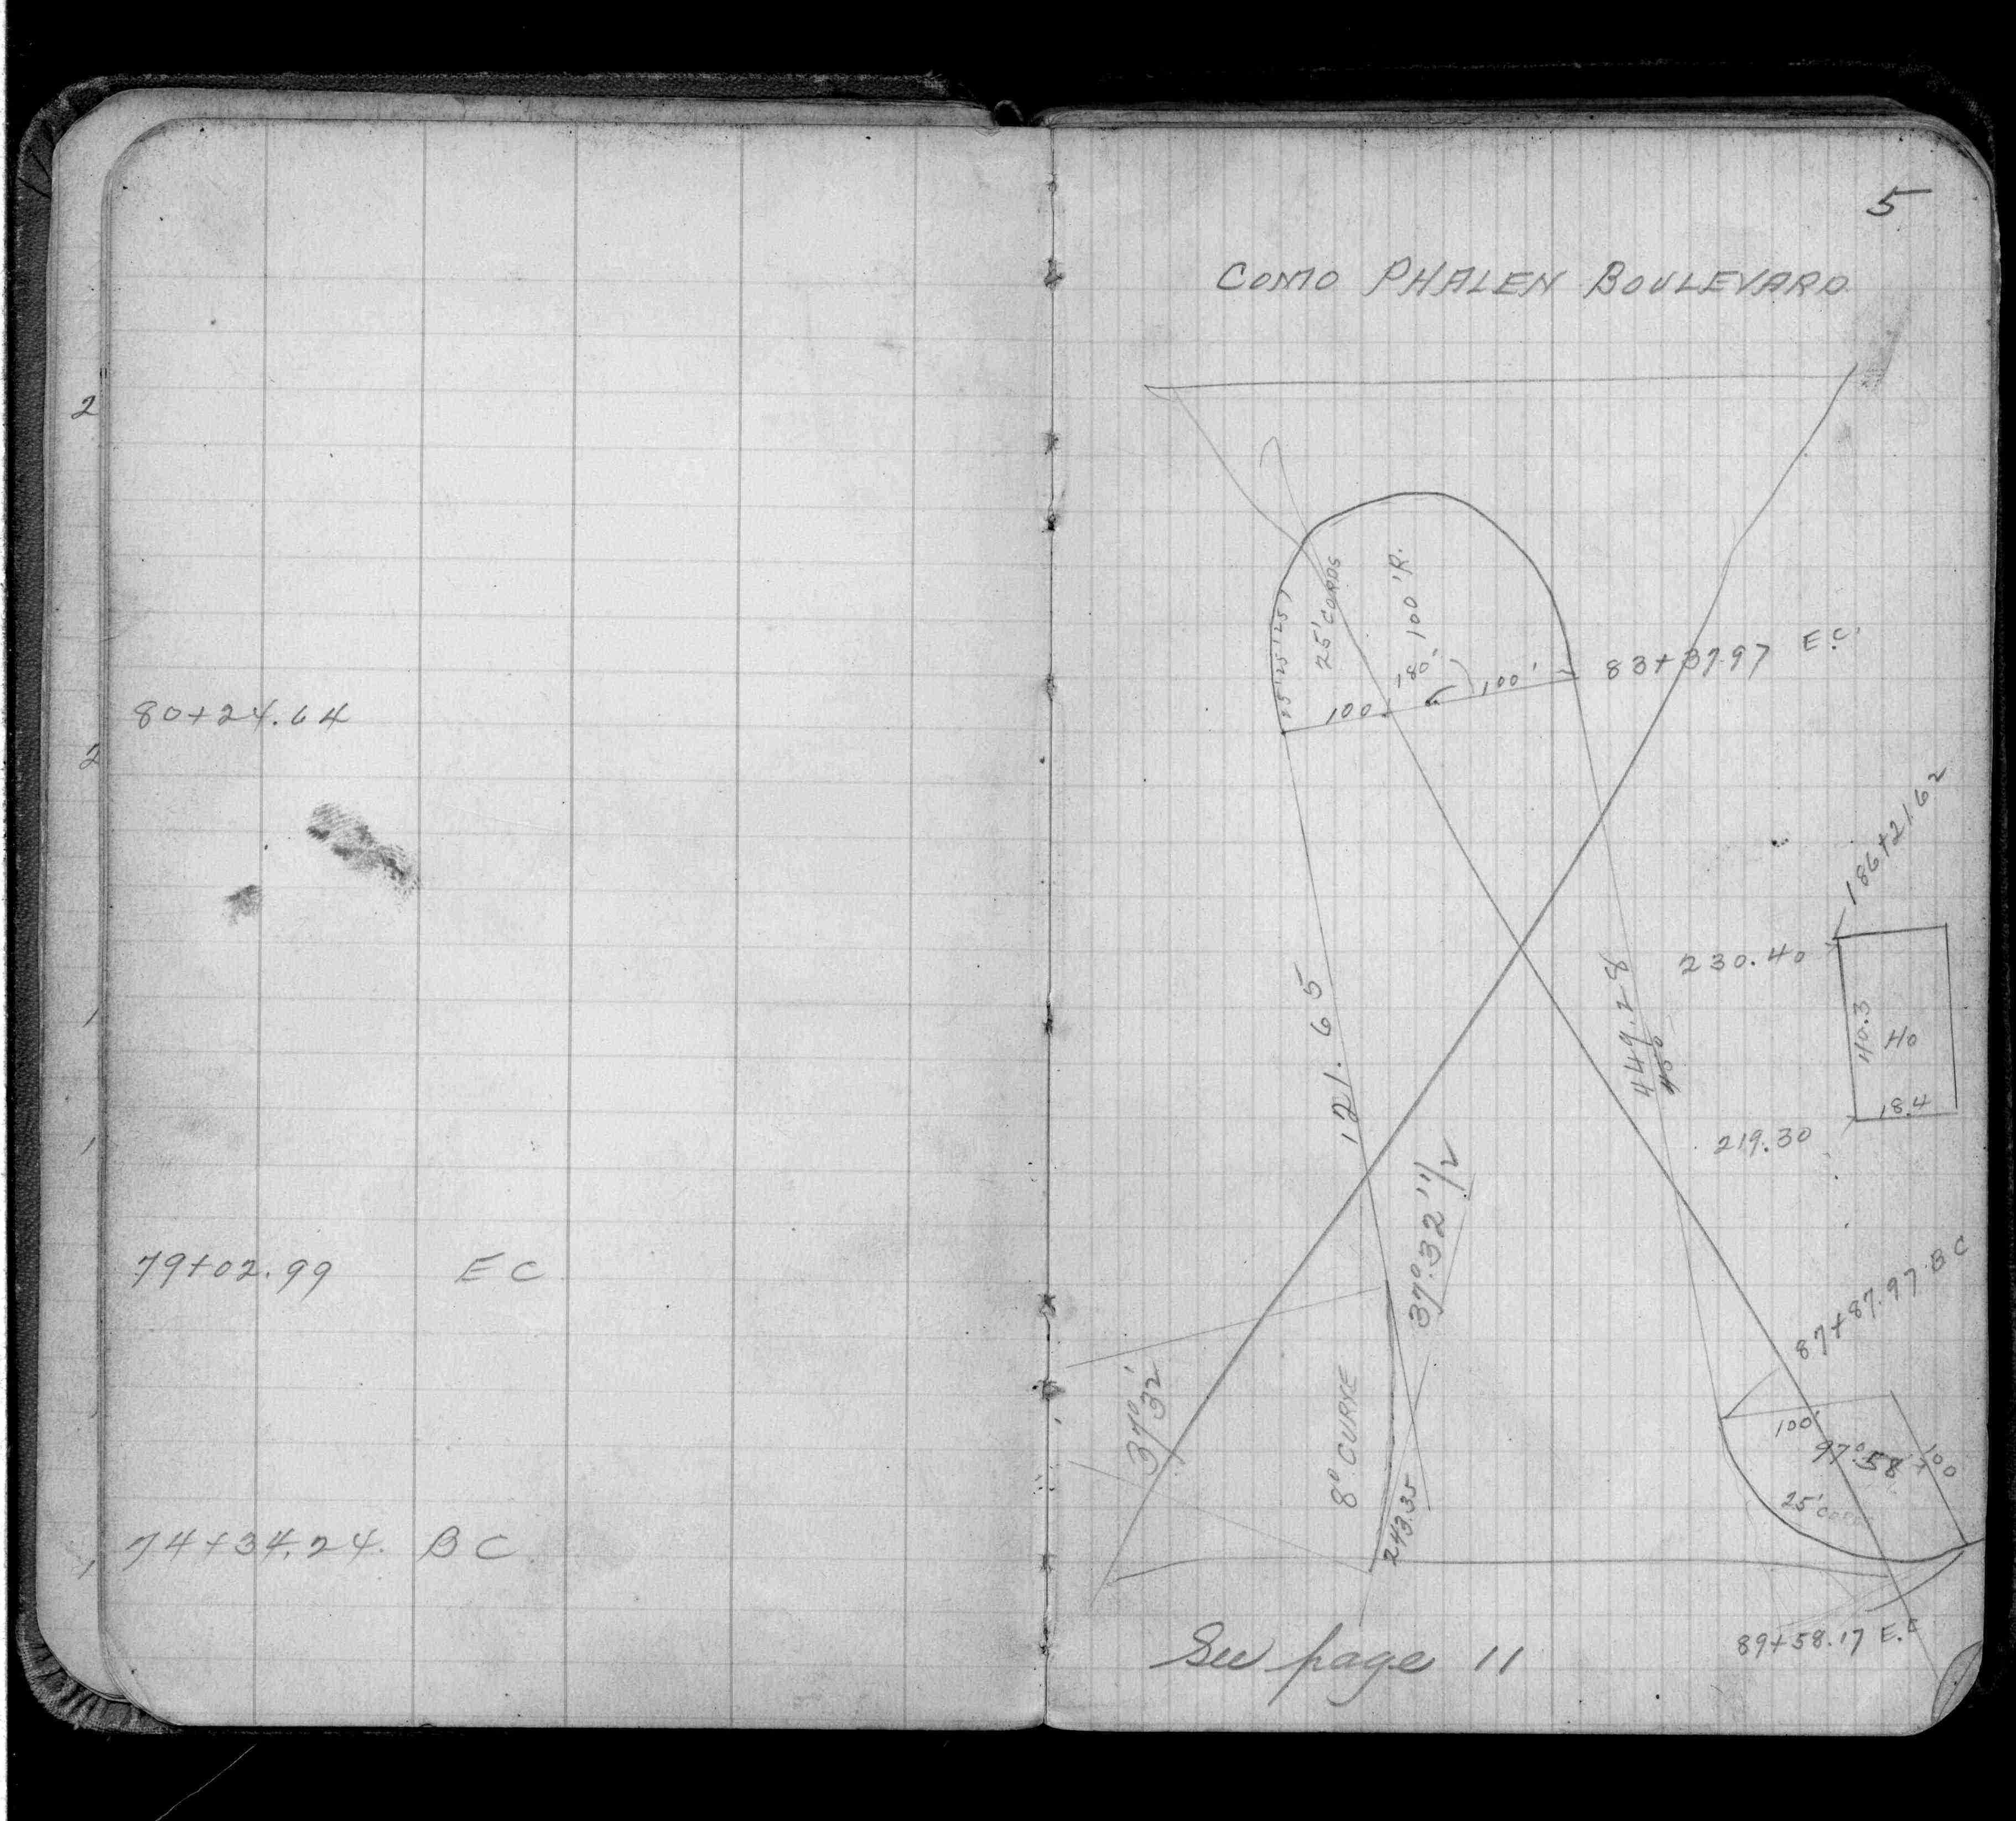 80+24.64
79+02.99 EC
74+34.24. BC
5
COMO PHALEN BOULEVARD
25' 25' 25'
25' CORDS
180° 100' R.
100
100'
83+37.97 E.C.
186+21.62
230.40
40.3
40
18.4
219.30
121.65
449.28
450
37°.32' 1/2
37° 32'
8° CURVE
243.35
87+87.97 BC
100'
97°.58'
100
25' CORDS
89+58.17 E.C
See page 11
2
2
1
1
1